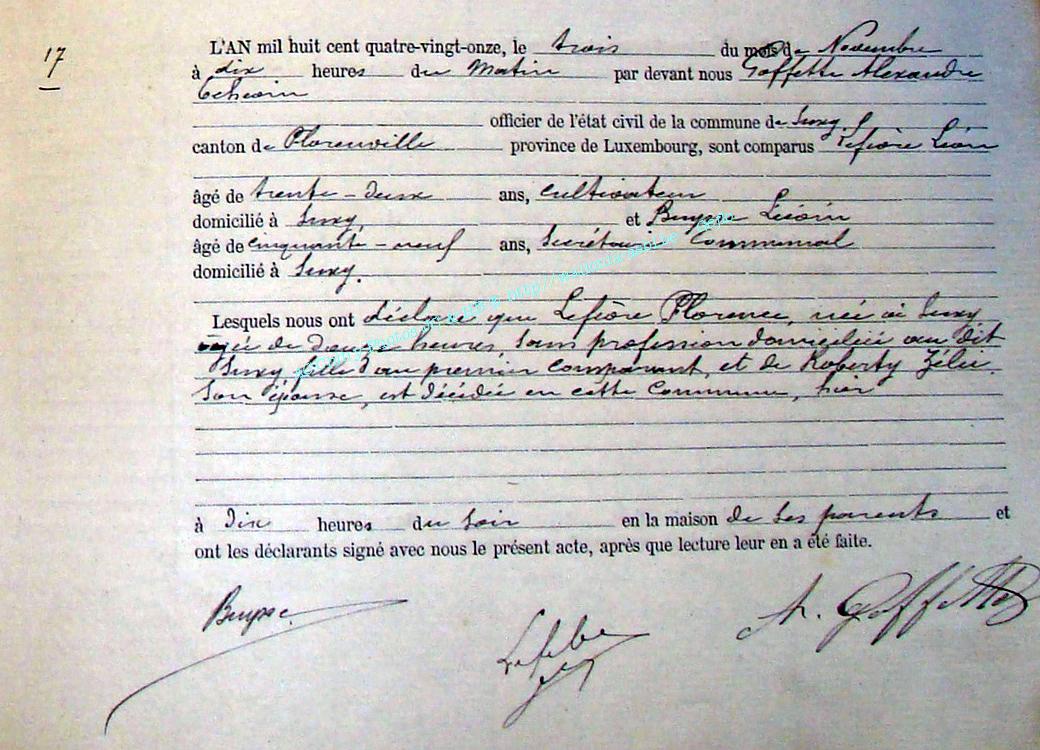 17
L'AN mil huit cent quatre-vingt-onze, le trois du mois de Novembre
à dix heures du Matin par devant nous Goffette Alexandre
Echevin
officier de l'état civil de la commune de Suxy
canton de Florenville province de Luxembourg, sont comparus Lefèvre Léon
âgé de trente-deux ans, cultivateur
domicilié à Suxy et Buysse
âgé de cinquante-neuf ans, Secrétaire Communal
domicilié à Suxy.
Lesquels nous ont déclaré que Lefèvre Florence, née à Suxy
agée de douze heures, sans profession domiciliée au dit
Suxy fille du premier comparant, et de Roberty Zélie
son épouse, est décédée en cette Commune, hier
à dix heures du soir en la maison de ses parents et
ont les déclarants signé avec nous le présent acte, après que lecture leur en a été faite.
Buysse
A. Goffette